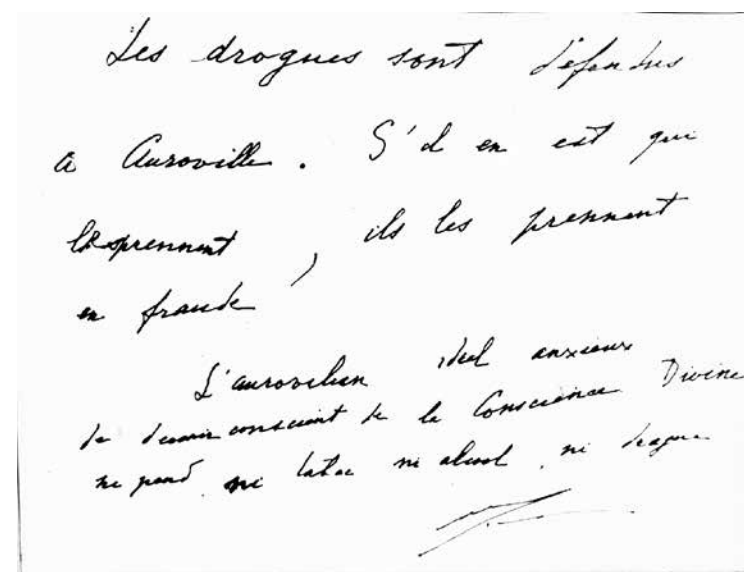 Les drogues sont défendues
à Auroville. S'il en est qui
les prennent, ils les prennent
en fraude
L'aurovilien idéal anxieux
de devenir conscient de la Conscience Divine
ne prend ni tabac ni alcool, ni drogue